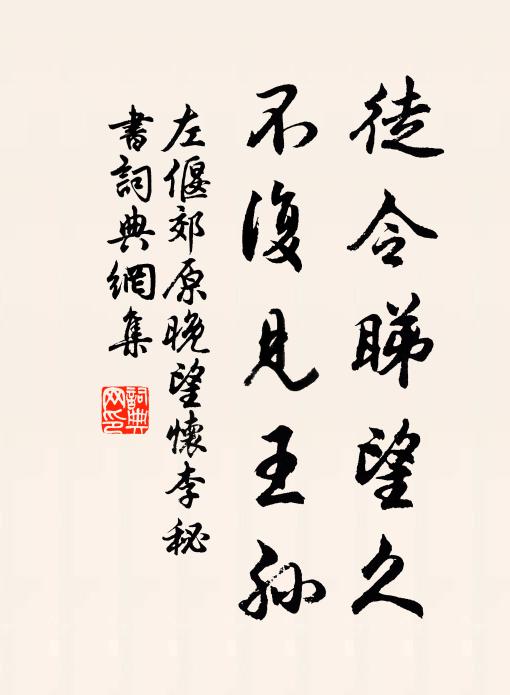 徒令睇望久
不復見王孫
左偃郊原晚望懷李秘
書詞典網集
詞典網印